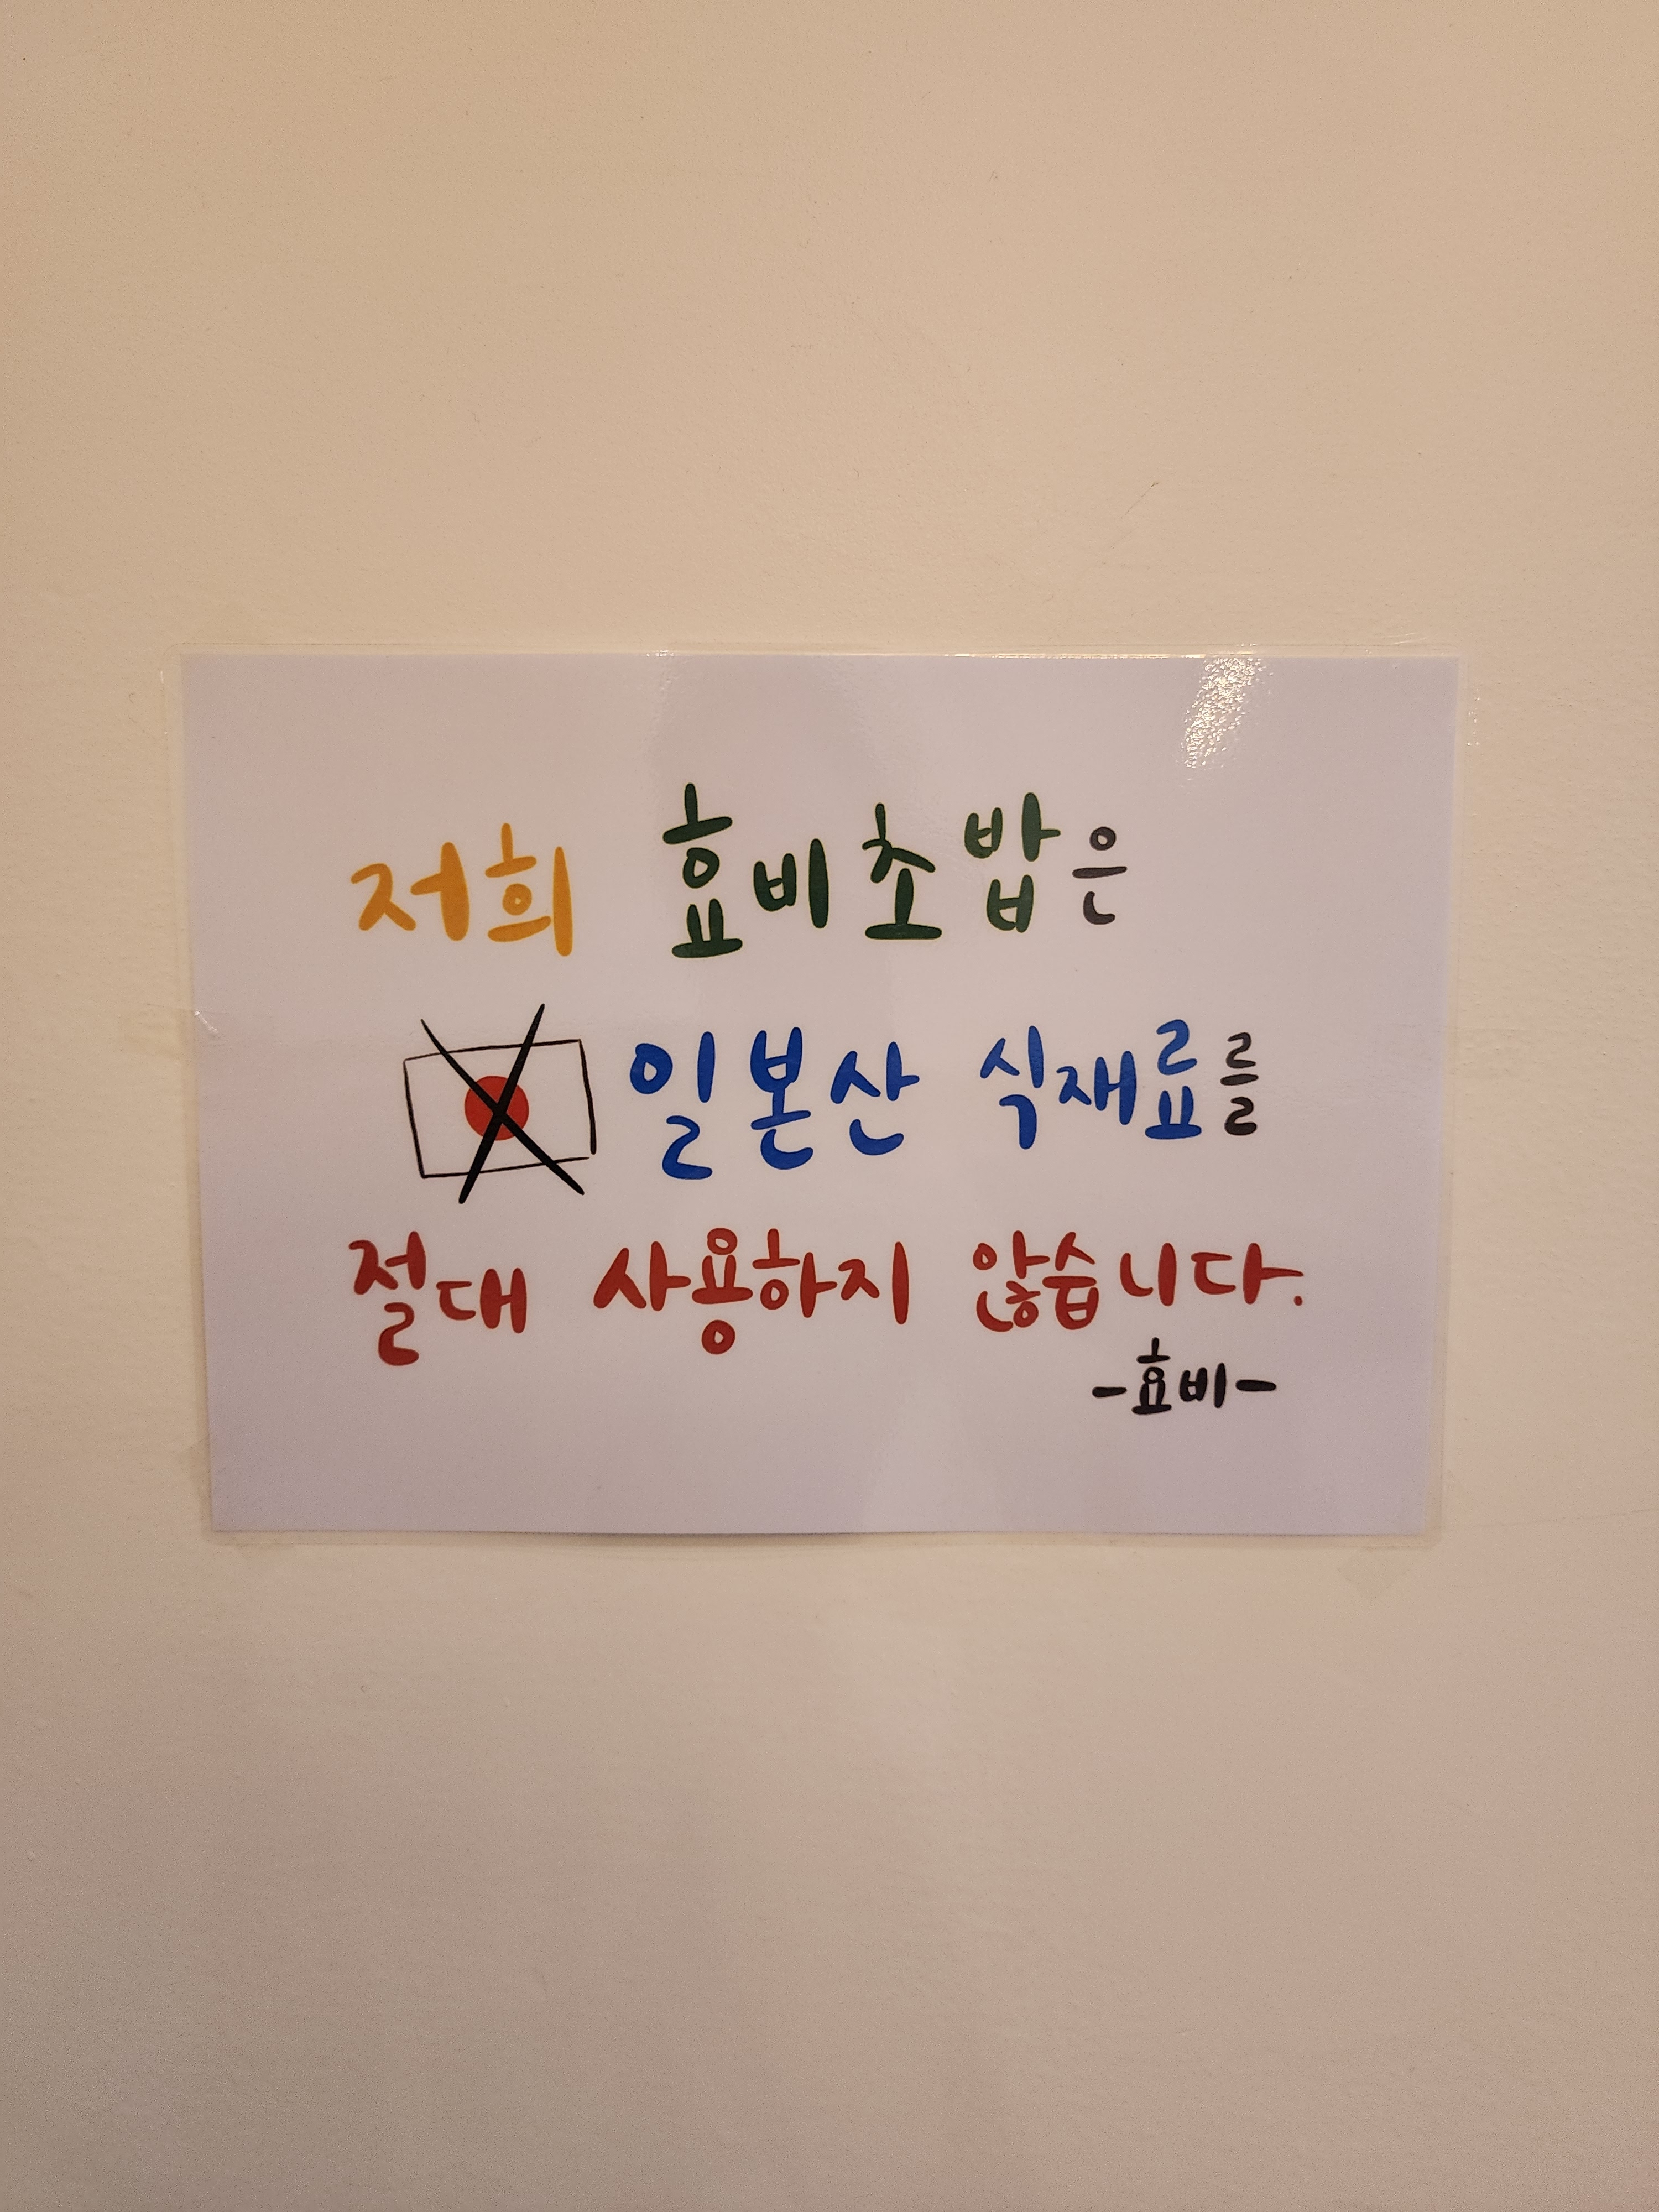 저희 효비초밥은
일본산 식재료를
절대 사용하지 않습니다.
-효비-